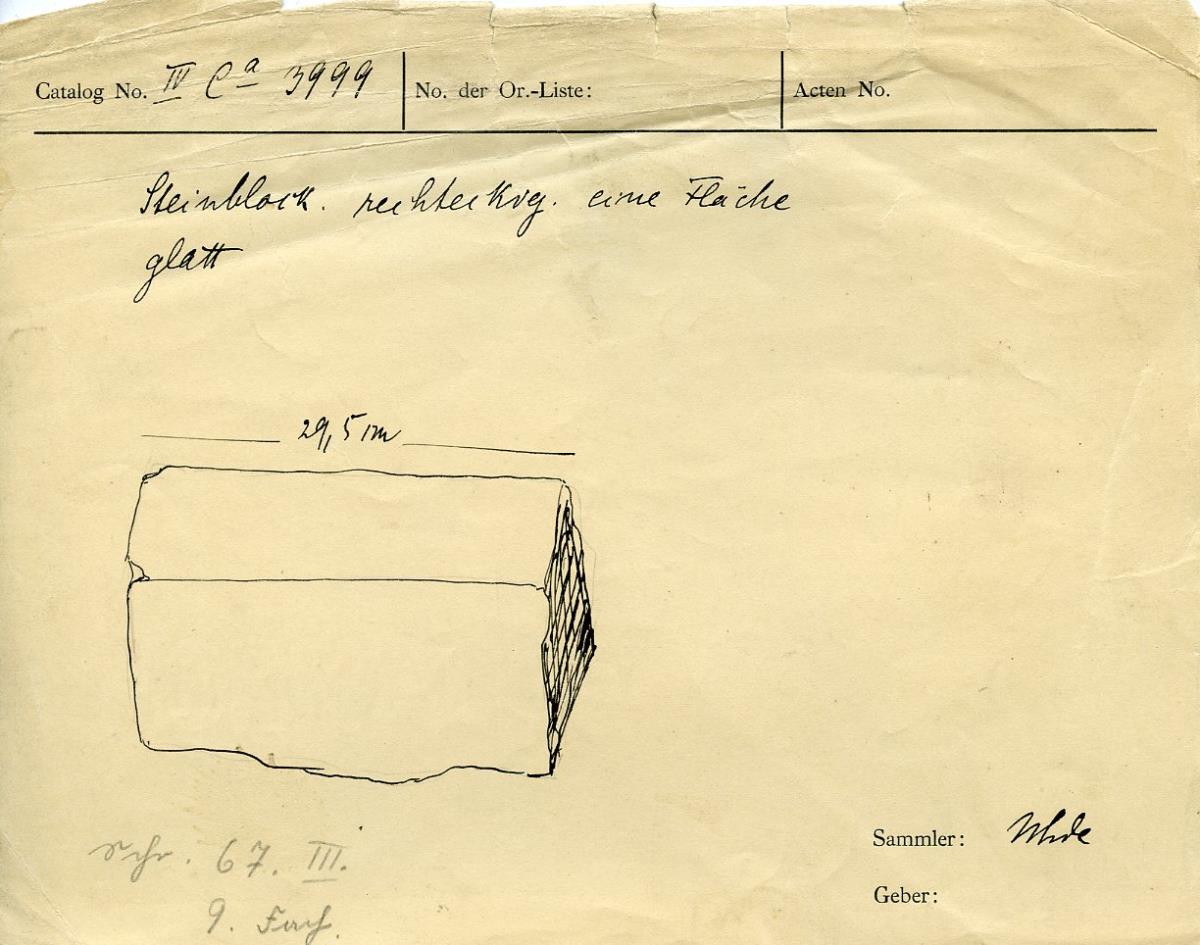 Catalog No. IV Ca 3999 No. der Or.-Liste: Acten No.
Steinblock. rechteckig. eine Fläche
glatt
29,5 cm
Schr. 67. III.
9. Fach.
Sammler: Uhde
Geber: